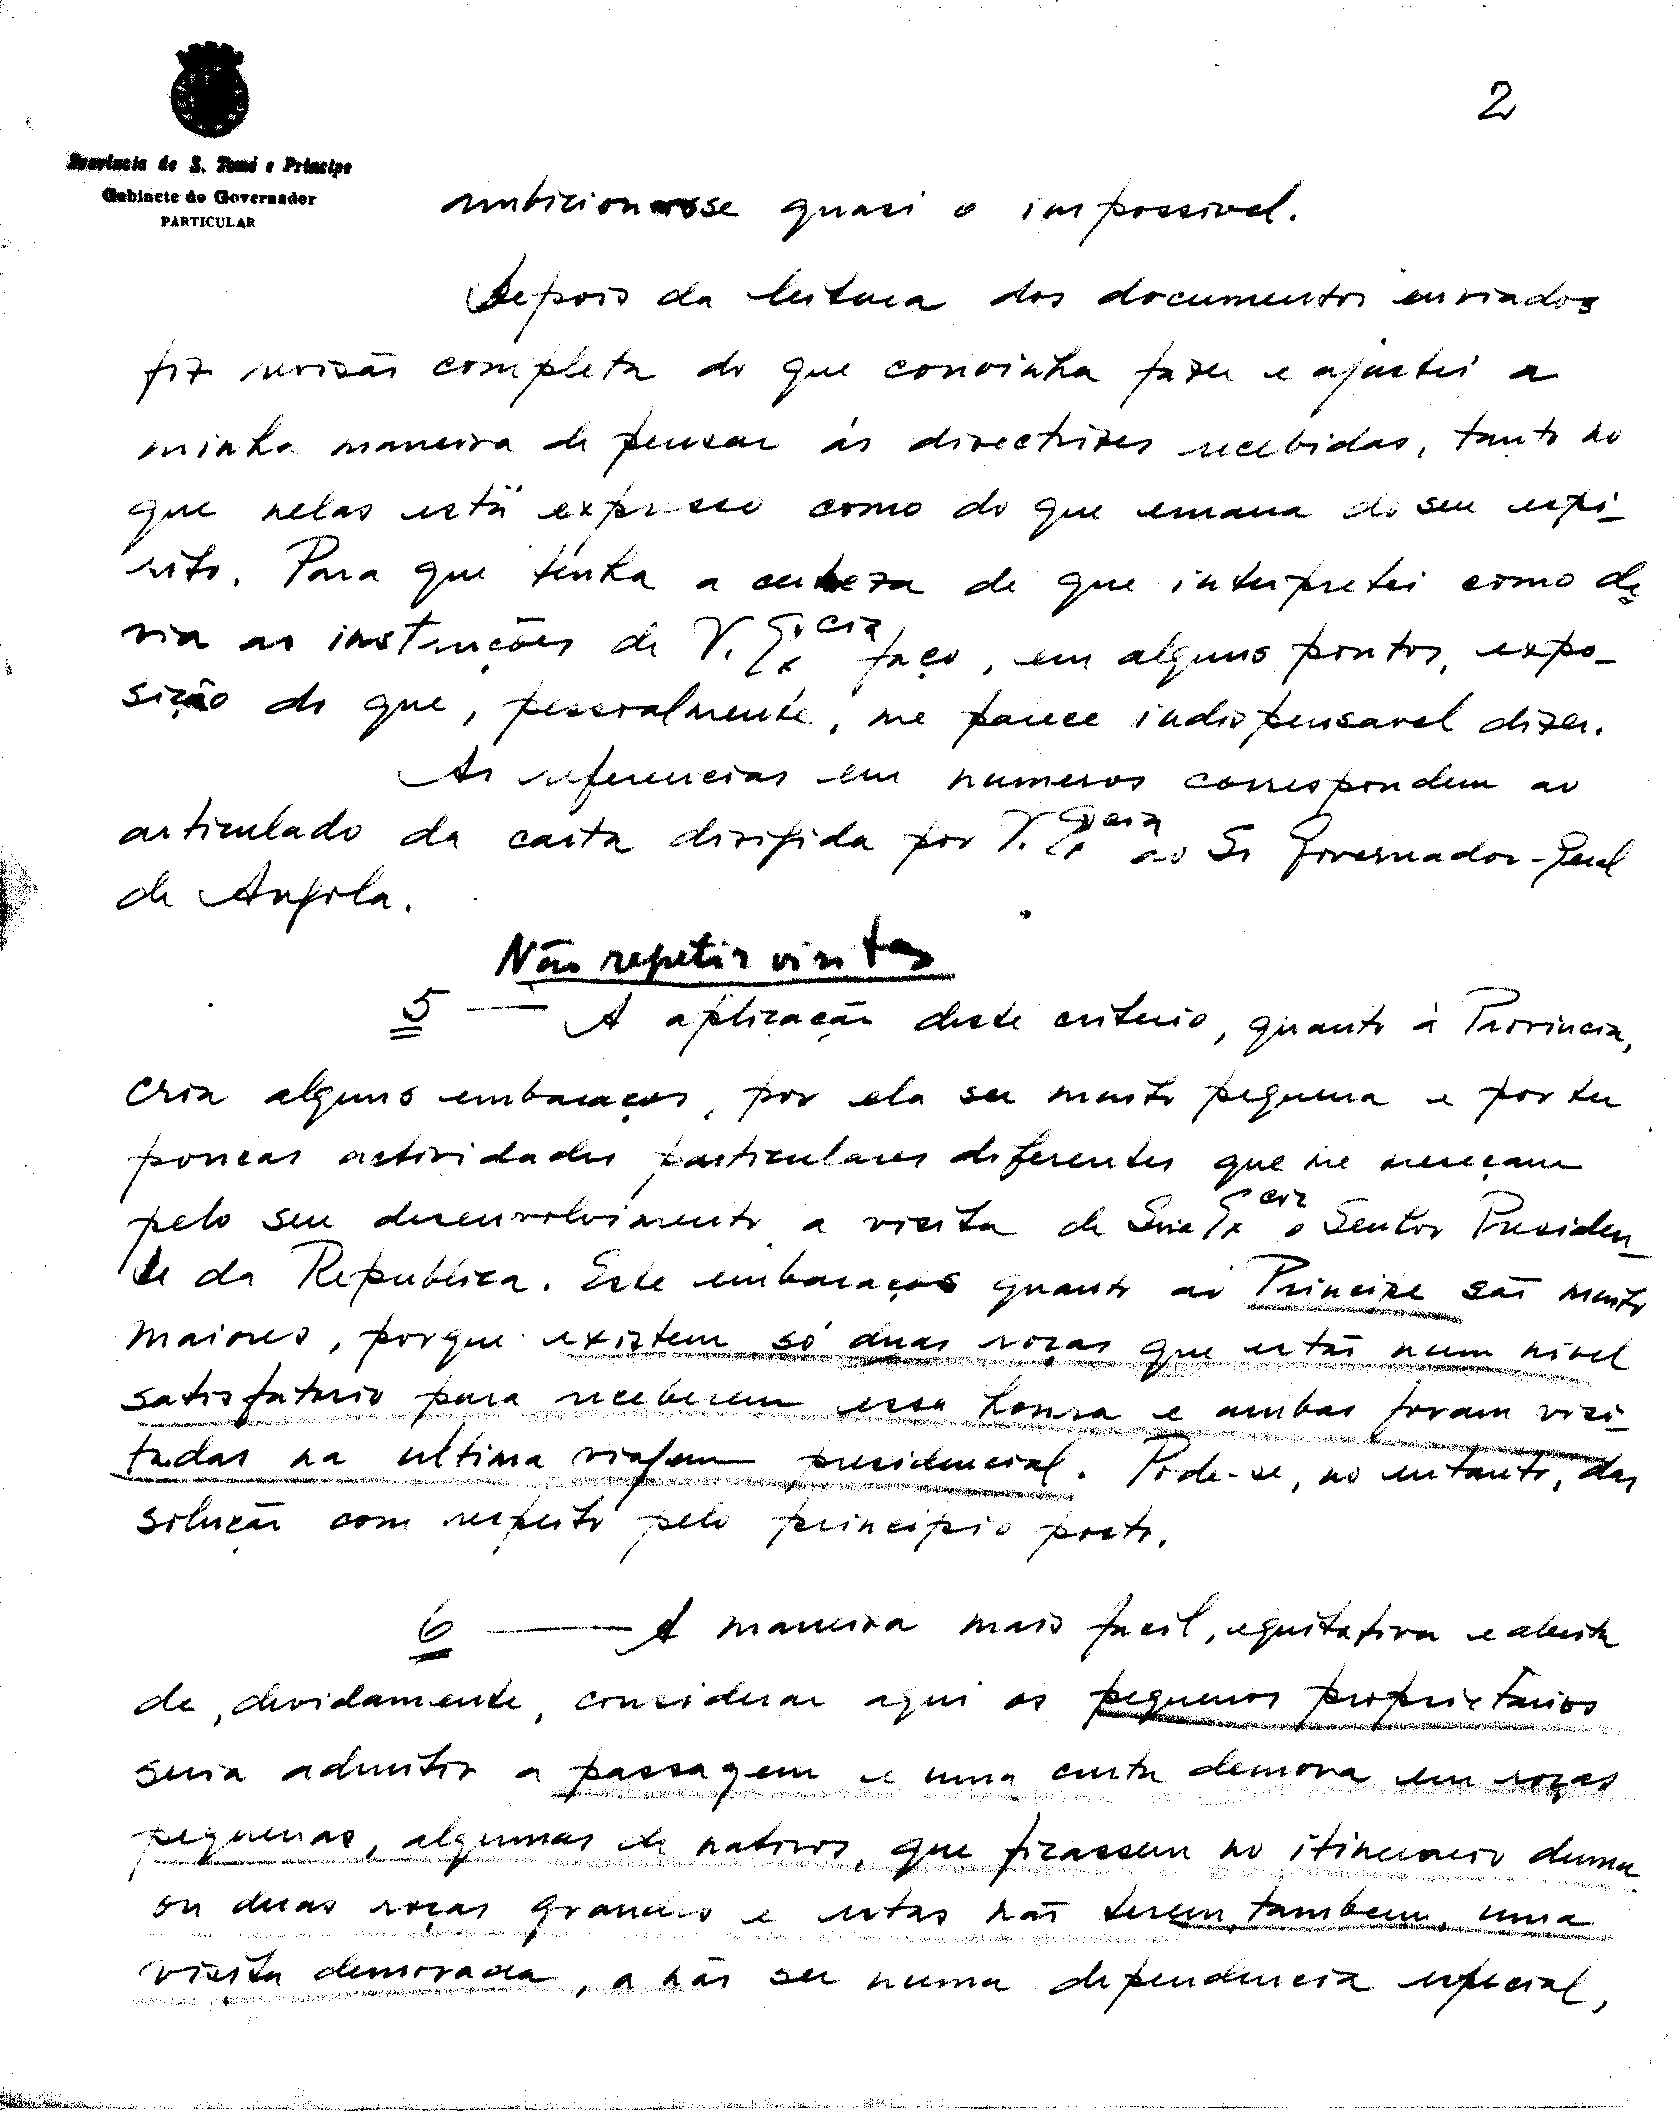 2
Provincia de S. Tomé e Principe
Gabinete do Governador
PARTICULAR
ambicionasse quasi o impossivel.
Depois da leitura dos documentos enviados
fiz revisão completa do que convinha fazer e ajustei a
minha maneira de pensar ás directrizes recebidas, tanto no
que nelas está expresso como do que emana do seu espi-
rito. Para que tenha a certeza de que interpretei como de-
via as instruções de V. Ex.cia faço, em alguns pontos, expo-
sição do que, pessoalmente, me parece indispensavel dizer.
As referencias em numeros correspondem ao
articulado da carta dirigida por V. Ex.cia ao Sr Governador-Geral
de Angola.
Não repetir visitas
5 — A aplicação deste criterio, quanto á Provincia,
cria alguns embaraços, por ela ser muito pequena e por ter
poucas actividades particulares diferentes que me mereçam
pelo seu desenvolvimento a visita de Sua Ex.cia o Senhor Presiden-
te da Republica. Este embaraços quanto ao Principe são muito
maiores, porque existem só duas roças que estão num nivel
satisfatorio para receberem essa honra e ambas foram visi-
tadas na ultima viagem presidencial. Pode-se, no entanto, dar
solução com respeito pelo principio posto.
6 — A maneira mais facil, equitativa e aberta
de, devidamente, considerar aqui os pequenos proprietarios
seria admitir a passagem e uma curta demora em roças
pequenas, algumas de nativos, que ficassem no itinerario duma
ou duas roças grandes e estas não terem, tambem, uma
visita demorada, a não ser numa dependencia especial,